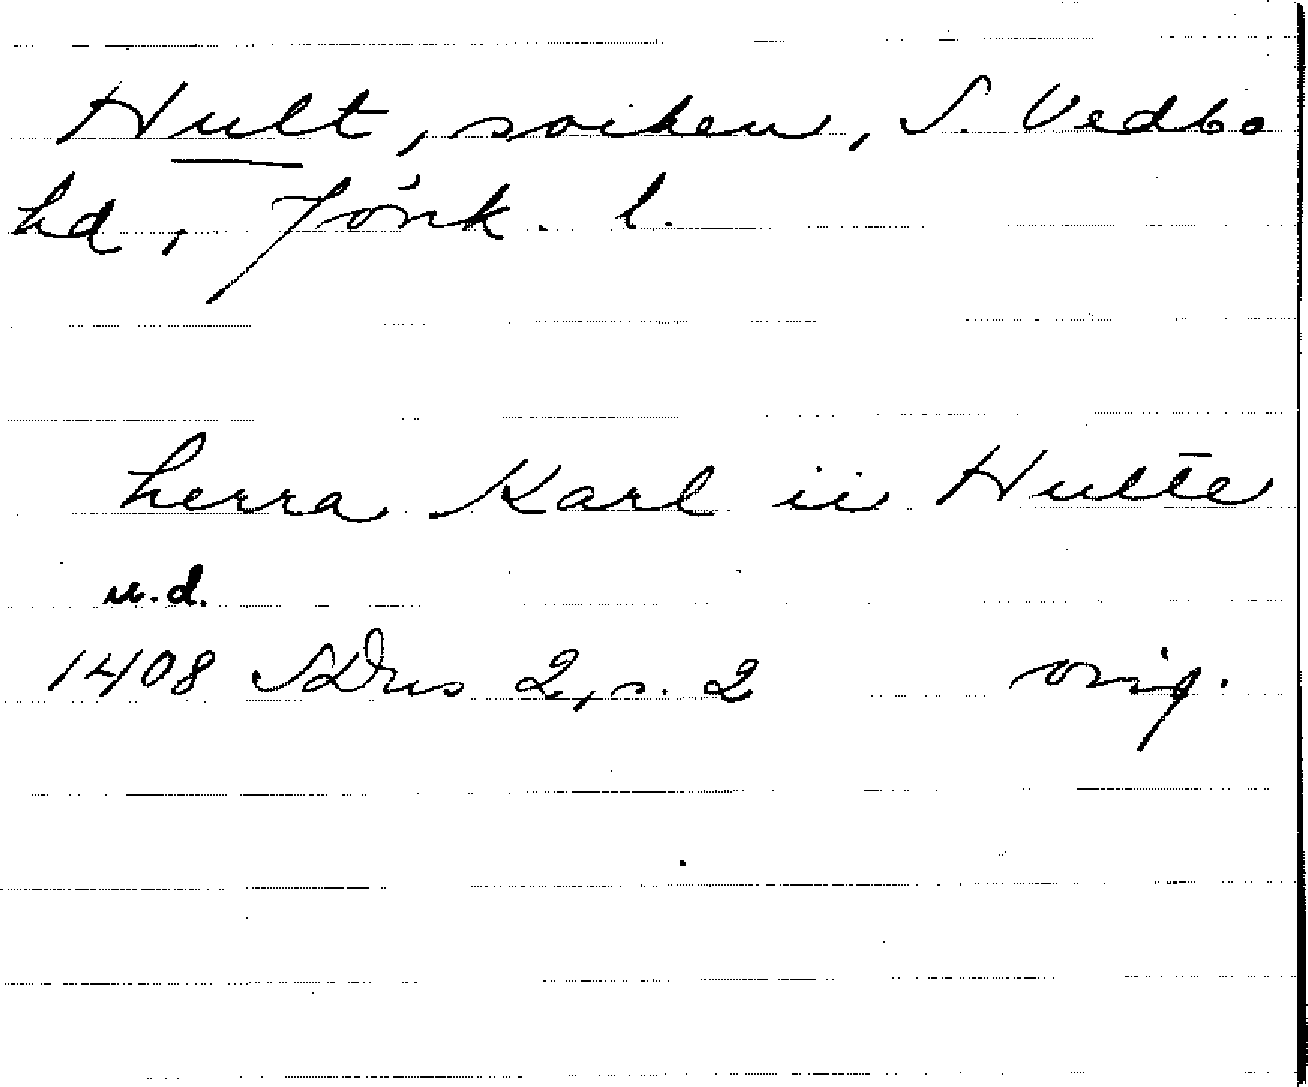 Hult, socken, S. Vedbo
hd, Jönk. l.
herra Karl ii Hulte
u.d.
1408 SDns 2, s. 2 orig.